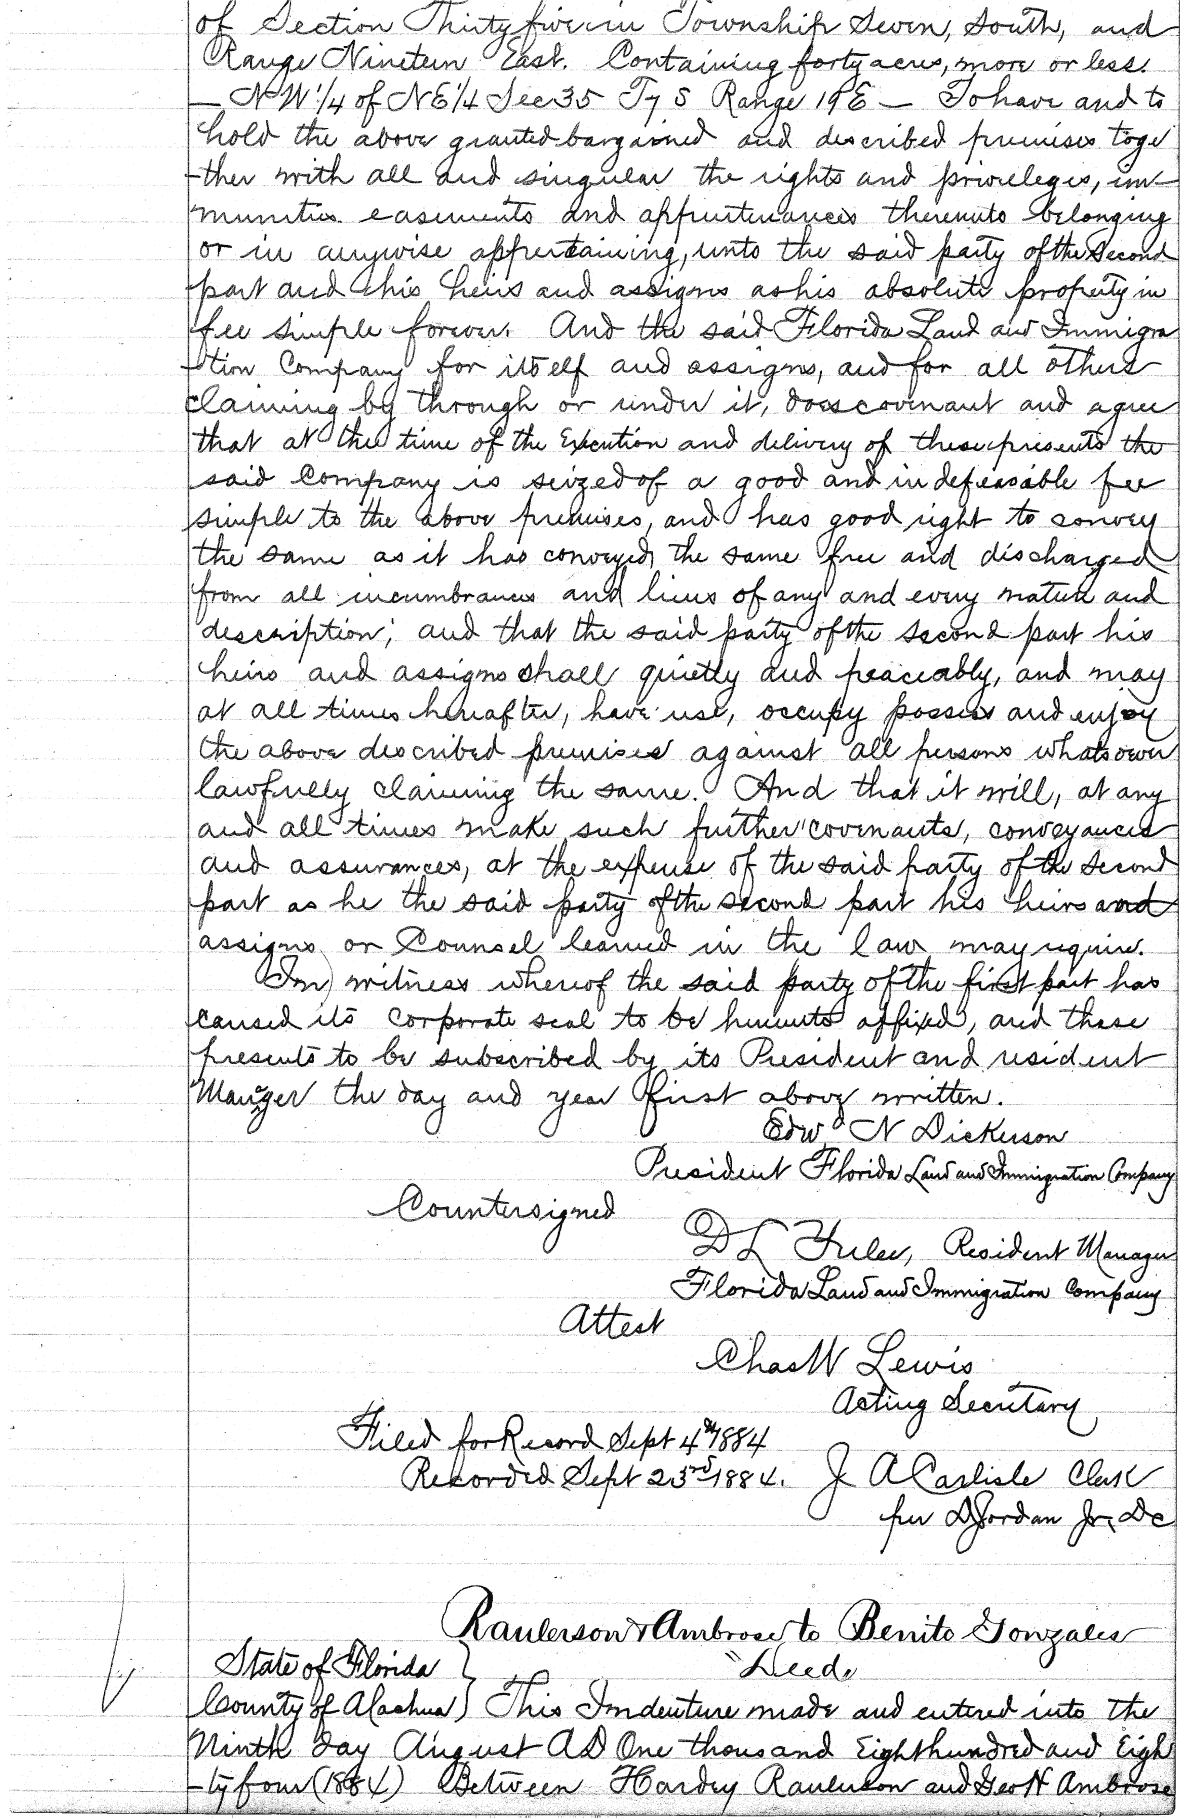 of Section Thirty five in Township Seven, South, and
Range Nineteen East. Containing forty acres, more or less.
— NW 1/4 of NE 1/4 Sec 35 T 7 S Range 19 E — To have and to
hold the above granted bargained and described premises toge
-ther with all and singular the rights and privileges, im-
munities easements and appurtenances thereunto belonging
or in anywise appertaining, unto the said party of the second
part and his heirs and assigns as his absolute property in
fee simple forever. And the said Florida Land and Immigra
-tion Company for itself and assigns, and for all others
claiming by through or under it, does covenant and agree
that at the time of the Execution and delivery of these presents the
said Company is seized of a good and indefeasable fee
simple to the above premises, and has good right to convey
the same as it has conveyed, the same free and discharged
from all incumbrances and liens of any and every nature and
description; and that the said party of the second part his
heirs and assigns shall quietly and peaceably, and may
at all times hereafter, have use, occupy possess and enjoy
the above described premises against all persons whatsoever
lawfully claiming the same. And that it will, at any
and all times make such further covenants, conveyances
and assurances, at the expense of the said party of the second
part as he the said party of the second part his heirs and
assigns or Counsel learned in the law may require.
In witness whereof the said party of the first part has
caused its corporate seal to be hereunto affixed, and these
presents to be subscribed by its President and resident
Manger the day and year first above written.
Edwd N Dickerson
President Florida Land and Immigration Company
Countersigned
D L Yulee, Resident Manager
Florida Land and Immigration Company
Attest
Chas W Lewis
Acting Secretary
Filed for Record Sept 4th 1884
Recorded Sept 23rd 1884. J A Carlisle Clerk
per D Jordan Jr, DC
Raulerson & Ambrose to Benito Gonzales
State of Florida } "Deed"
County of Alachua } This Indenture made and entered into the
Ninth day August AD One thousand Eight hundred and Eigh
-ty four (1884) Between Hardy Raulerson and Geo H Ambrose